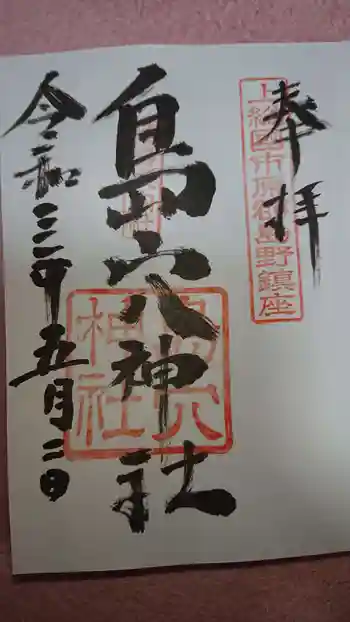 奉拝
上総国市原郡島野鎮座
島穴神社
島穴神社
令和三年五月二日